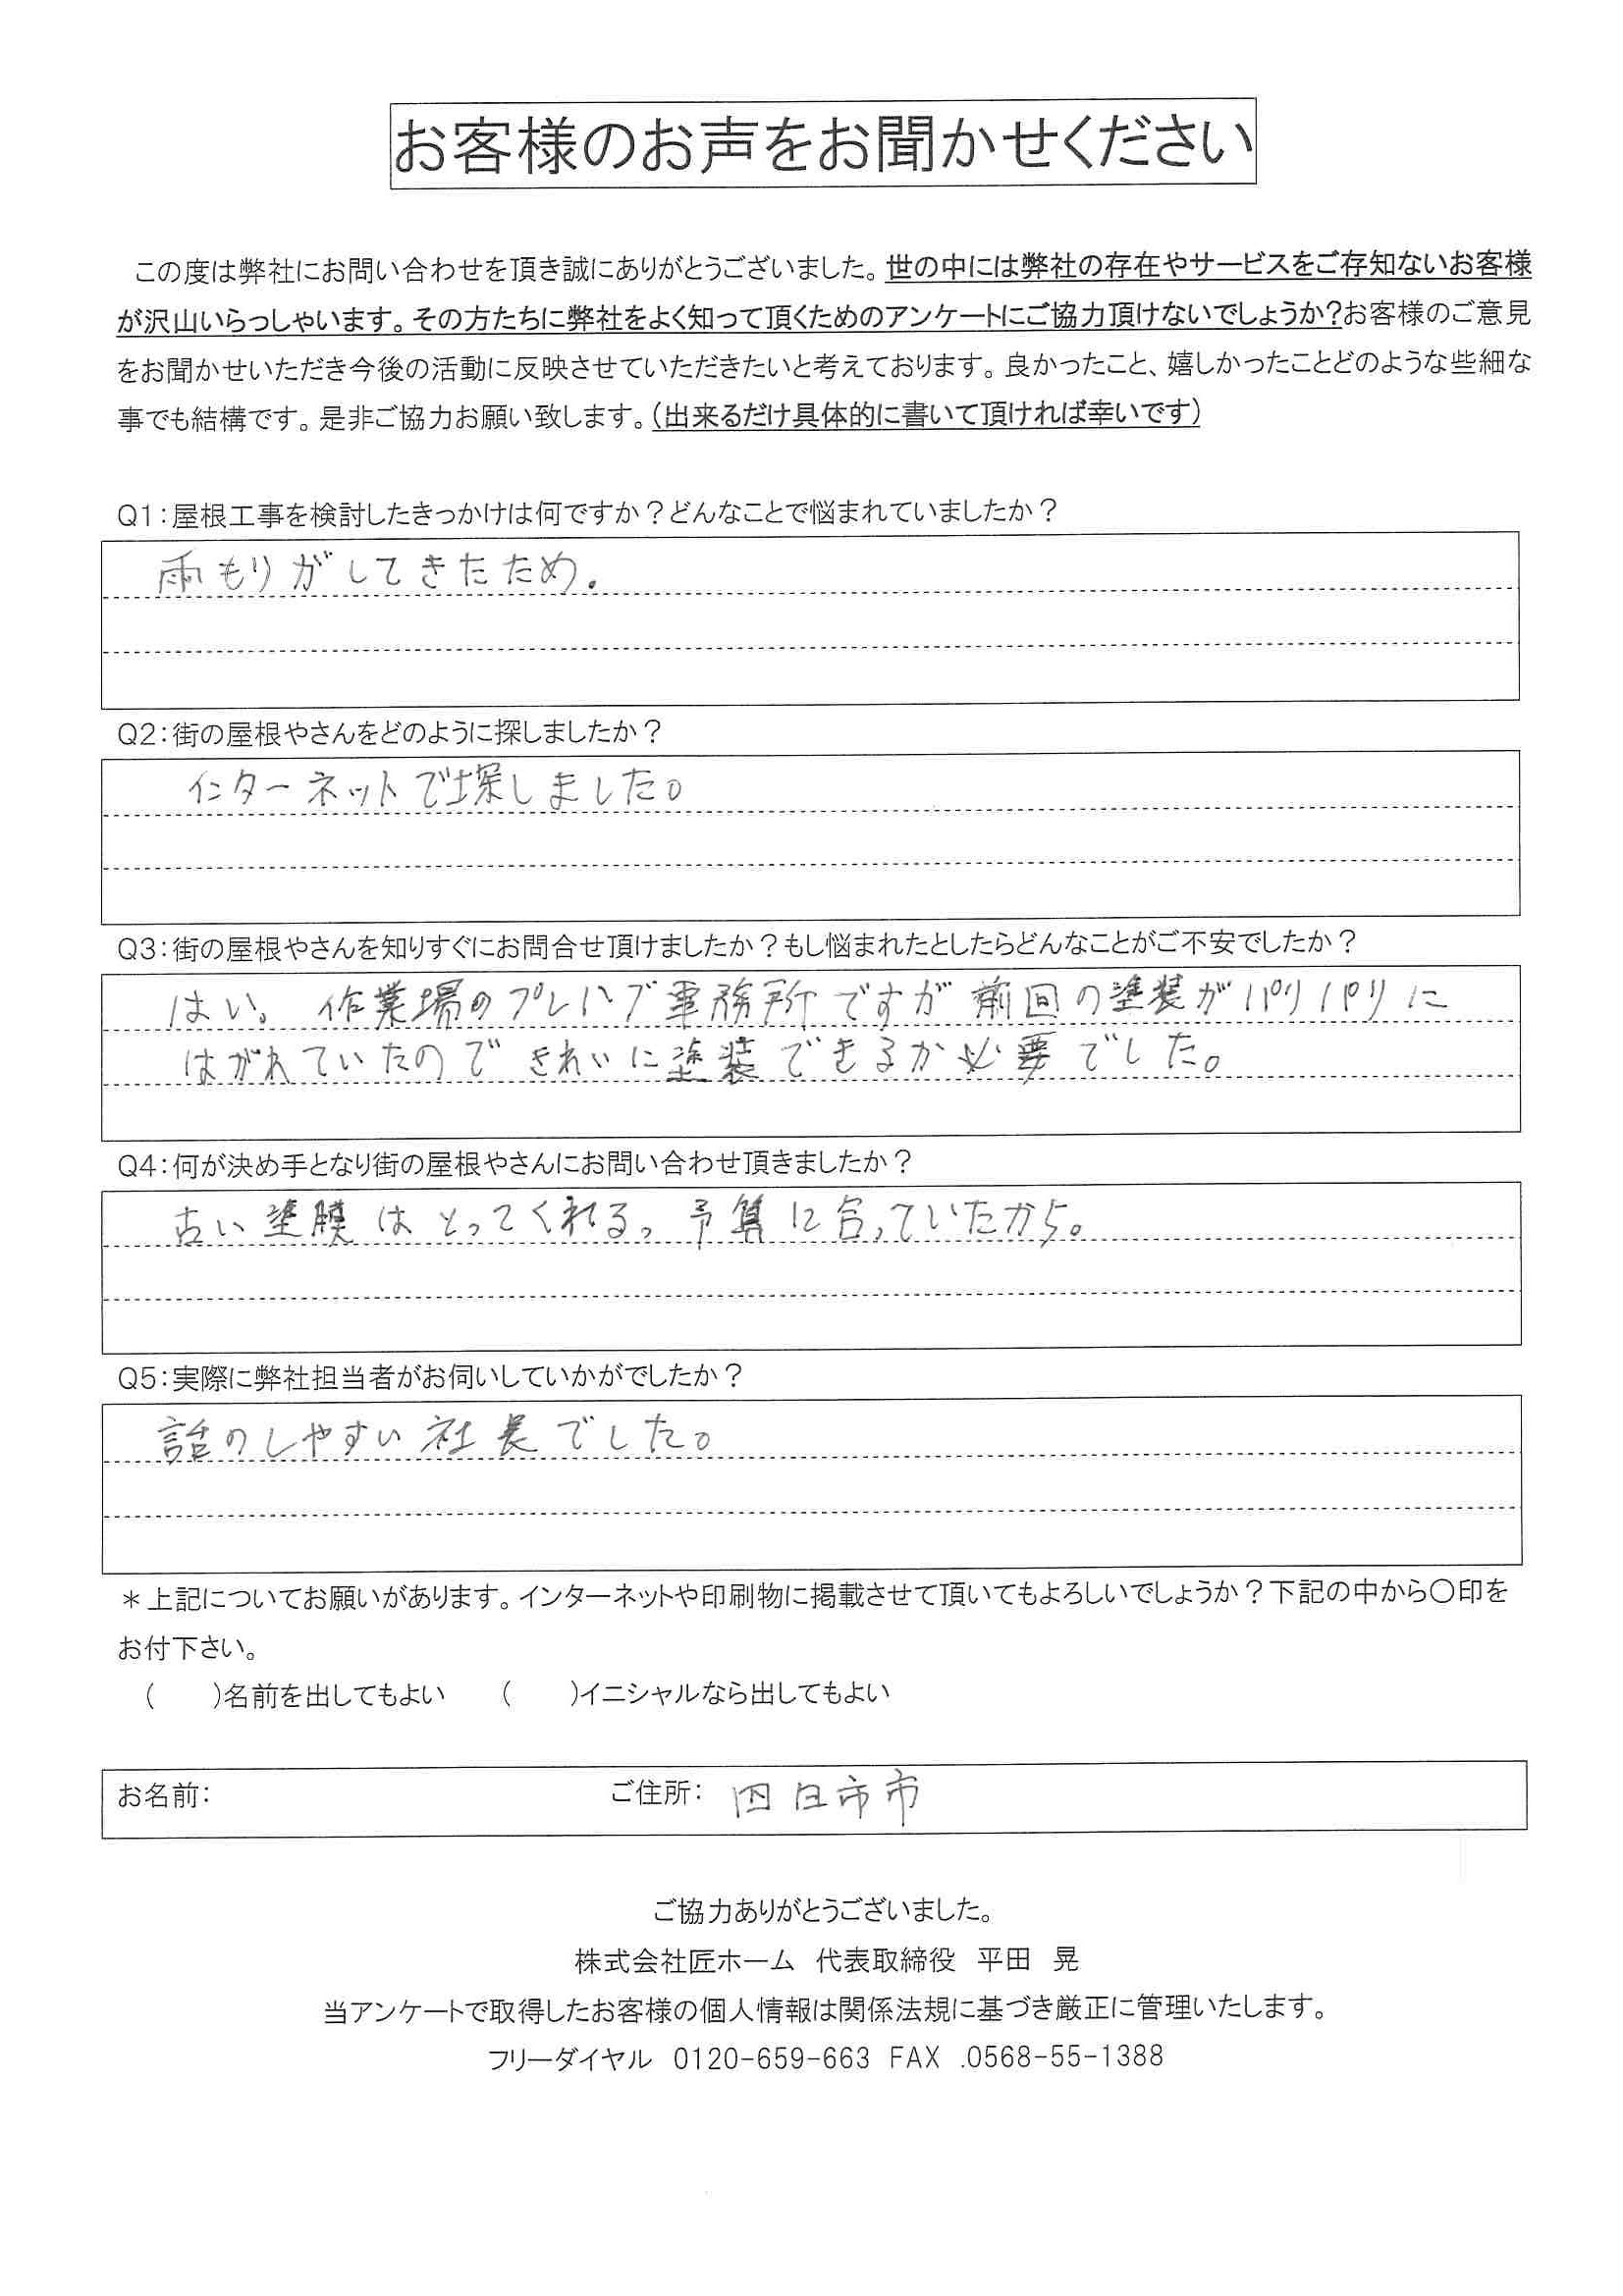 お客様のお声をお聞かせください
この度は弊社にお問い合わせを頂き誠にありがとうございました。世の中には弊社の存在やサービスをご存知ないお客様
が沢山いらっしゃいます。その方たちに弊社をよく知って頂くためのアンケートにご協力頂けないでしょうか?お客様のご意見
をお聞かせいただき今後の活動に反映させていただきたいと考えております。良かったこと、嬉しかったことどのような些細な
事でも結構です。是非ご協力お願い致します。(出来るだけ具体的に書いて頂ければ幸いです)
Q1:屋根工事を検討したきっかけは何ですか?どんなことで悩まれていましたか?
雨もりがしてきたため.
Q2:街の屋根やさんをどのように探しましたか?
インターネットで探しました。
Q3:街の屋根やさんを知りすぐにお問合せ頂けましたか?もし悩まれたとしたらどんなことがご不安でしたか?
はい。作業場のプレハブ事務所ですが前回の塗装がパリパリに
はがれていたのできれいに塗装できるか必要でした。
Q4:何が決め手となり街の屋根やさんにお問い合わせ頂きましたか?
古い塗膜はとってくれる。予算に合っていたから。
Q5:実際に弊社担当者がお伺いしていかがでしたか?
話のしやすい社長でした。
*上記についてお願いがあります。インターネットや印刷物に掲載させて頂いてもよろしいでしょうか?下記の中から○印を
お付下さい。
( )名前を出してもよい ( )イニシャルなら出してもよい
お名前: ご住所: 四日市市
ご協力ありがとうございました。
株式会社匠ホーム 代表取締役 平田 晃
当アンケートで取得したお客様の個人情報は関係法規に基づき厳正に管理いたします。
フリーダイヤル 0120-659-663 FAX .0568-55-1388